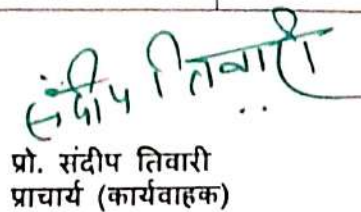 संदीप तिवारी
प्रो. संदीप तिवारी
प्राचार्य (कार्यवाहक)